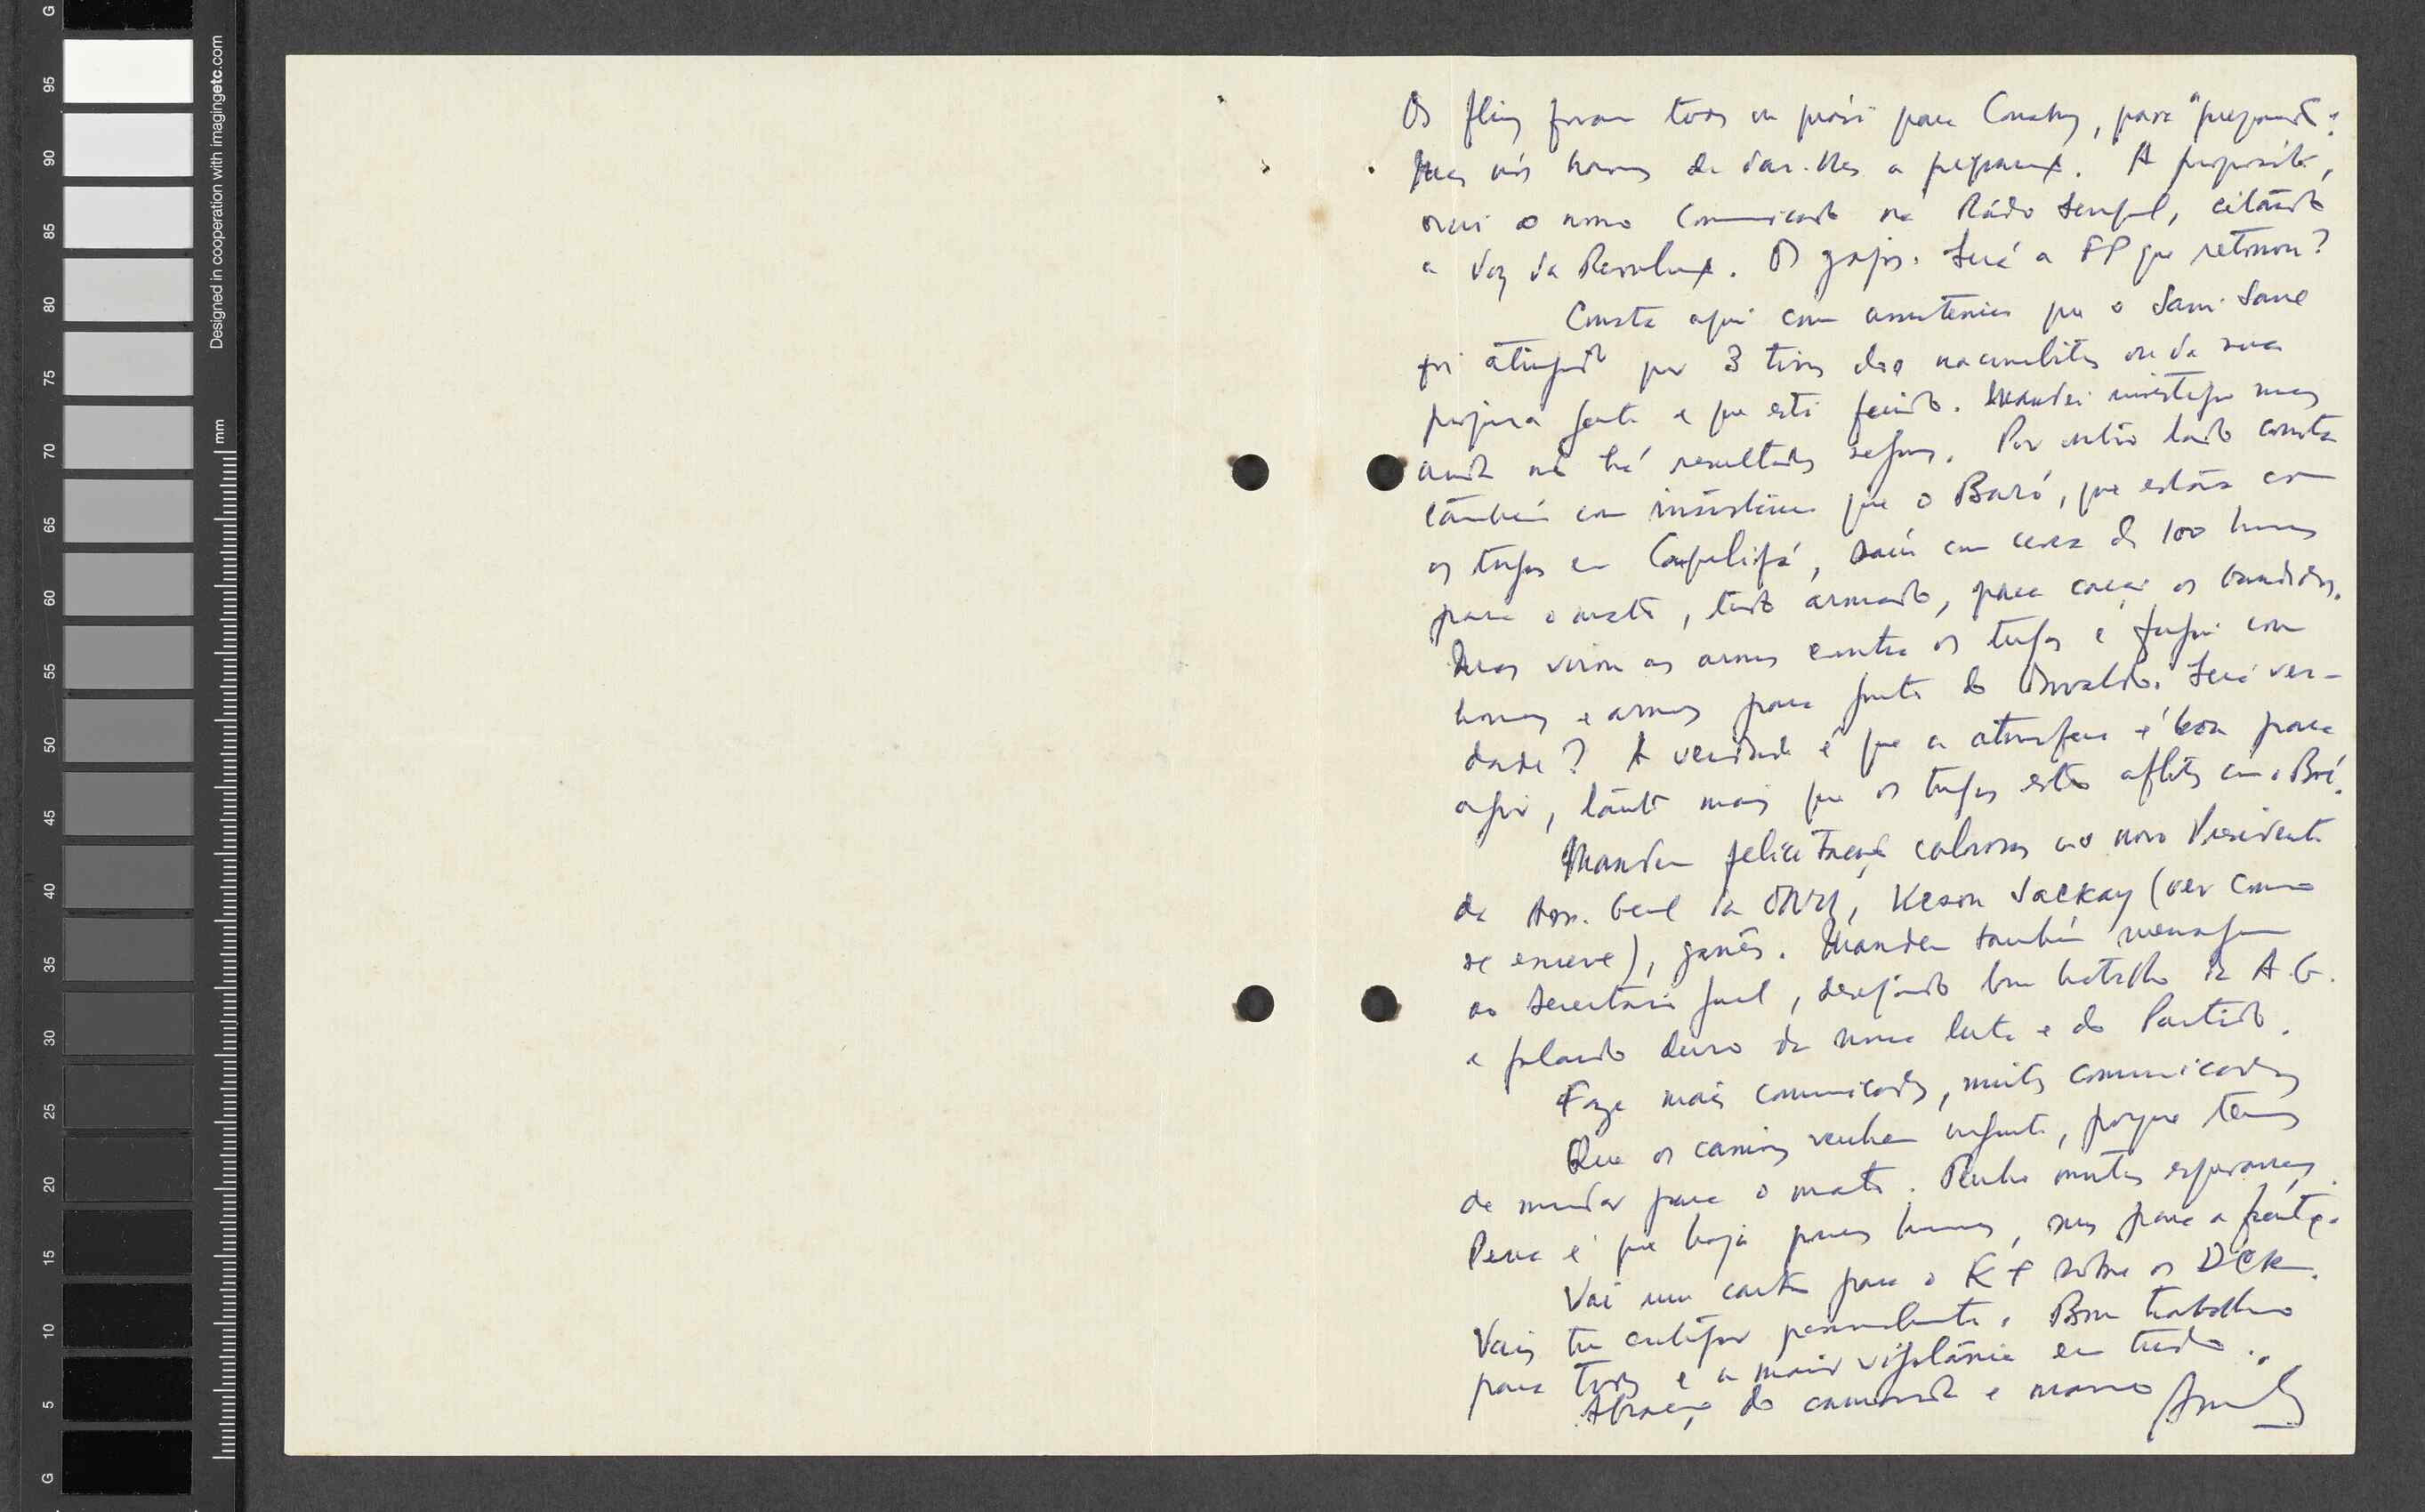 G
95
90
85
80
75
70
65
60
55
50
45
40
35
30
25
20
15
10
5
G
Designed in cooperation with imagingetc.com
mm
Os flins foram todos para Conakry, para "
Mas nós havemos de dar-lhes a preparação. A propósito,
ouvi o nosso comunicado na Rádio Senegal, citando
a Voz da Revolução. Os gajos. Será a FP que retomou?
Consta aqui com insistência que o Sani Sane
foi atingido por 3 tiros dos nacionalistas ou da sua
própria gente e que está ferido. Mandei investigar mas
ainda não há resultados seguros. Por outro lado consta
também com insistência que o Baró, que estava com
os tugas em Cagalifá, saiu com cerca de 100 homens
para o mato, tudo armado, para caçar os bandidos.
Mas virou as armas contra os tugas e fugiu com
homens e armas para junto do Osvaldo. Será ver-
dade? A verdade é que a atmosfera é boa para
agir, tanto mais que os tugas estão aflitos com o Boé.
Mandem felicitações calorosas ao novo Presidente
da Ass. Geral da ONU, Keson Sackay (ver como
se escreve), ganês. Mandem também mensagem
ao Secretário geral, desejando bom trabalho da A.G.
e falando duro da nossa luta e do Partido.
Faze mais comunicados, muitos comunicados
Que os camiões venham urgente, porque temos
de mudar para o mato. Tenho muitas esperanças.
Pena é que haja poucos homens, mas para a frente.
Vai uma carta para o KF sobre os DCK.
Vais tu entregar pessoalmente. Bom trabalho
para todos e a maior vigilância em tudo.
Abraço do camarada e mano